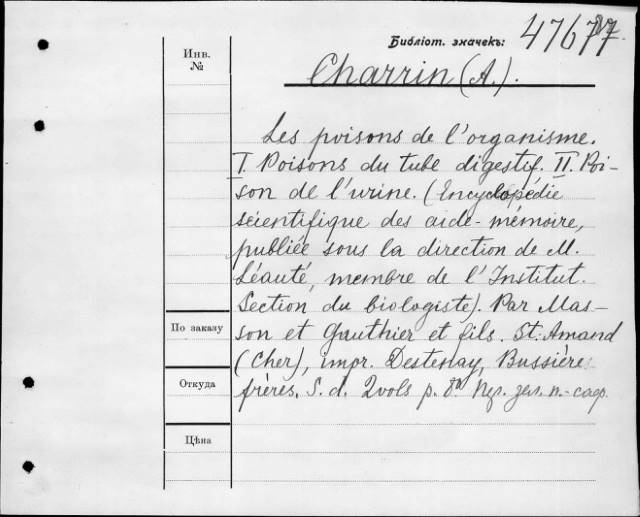 Библіот. значекъ: 47677.
Инв.
№
Charrin (A.).
Les poisons de l'organisme.
I. Poisons du tube digestif. II. Poi-
son de l'urine. (Encyclopédie
scientifique des aide-mémoire,
publiée sous la direction de M.
Léauté, membre de l'Institut.
Section du biologiste). Par Mas-
son et Gauthier et fils. St. Amand
(Cher), impr. Destenay, Bussière
frères. S. d. 2 vols p. 8°
По заказу
Откуда
Цѣна